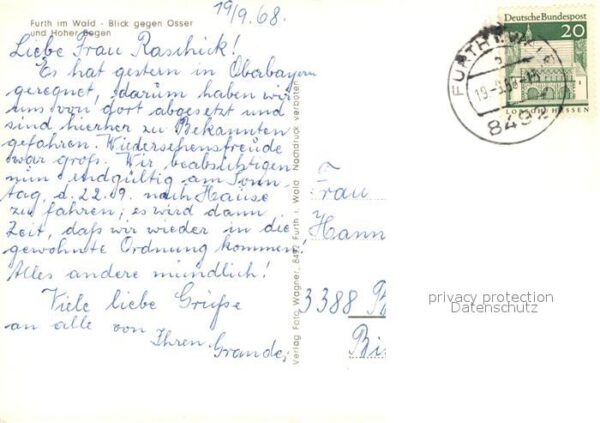 19/9.68.
Furth im Wald - Blick gegen Osser
und Hoher Bogen
Liebe Frau Raschick!
Es hat gestern in Oberbayern
geregnet, darum haben wir
uns von dort abgesetzt und
sind hierher zu Bekannten
gefahren. Wiedersehensfreude
war groß. Wir beabsichtigen
nun endgültig am Sonn-
tag, d. 22.09. nach Hause
zu fahren; es wird dann
Zeit, daß wir wieder in die
gewohnte Ordnung kommen.
Alles andere mündlich!
Viele liebe Grüße
an alle von
Ihren Grande,
Verlag Foto Wagner, 8492 Furth i. Wald Nachdruck verboten
Deutsche Bundespost
20
LORSCH HESSEN
FURTH I. WALD
8492
Frau
Hann
3388 B
privacy protection
Datenschutz